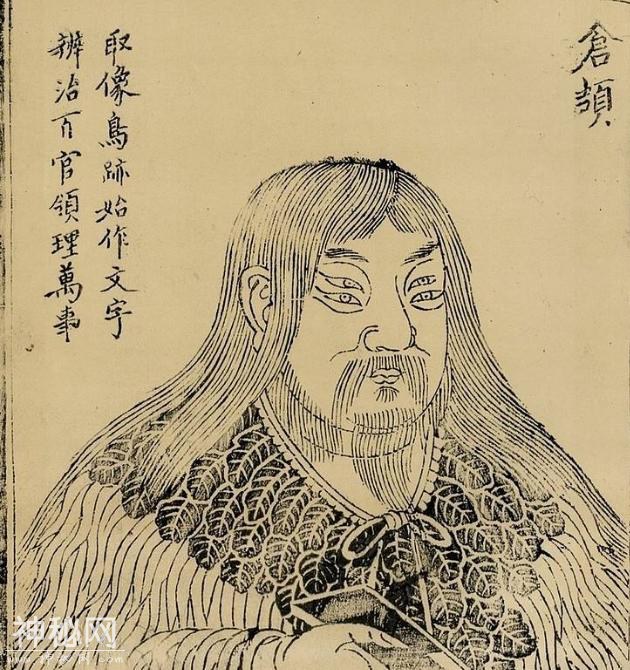 倉頡
取像鳥跡始作文字
辨治百官領理萬事
神秘网